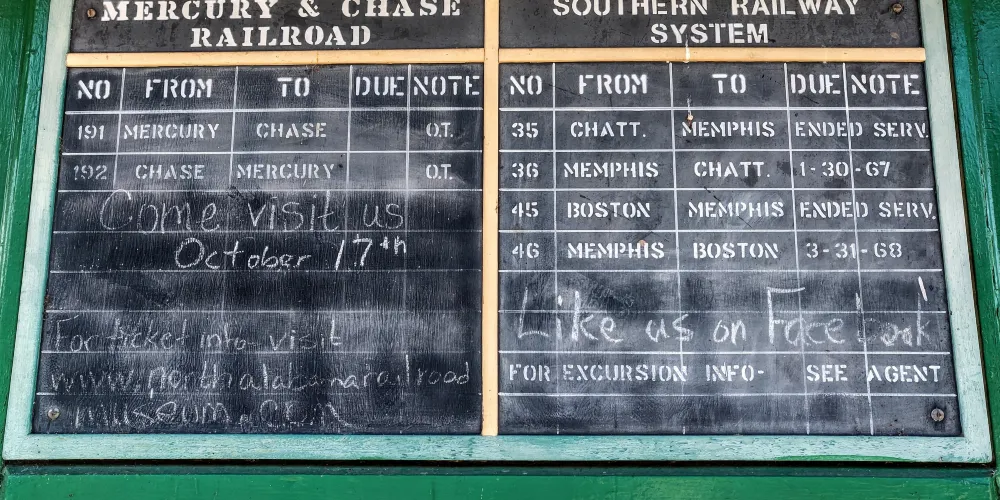 MERCURY & CHASE
RAILROAD
NO FROM TO DUE NOTE
191 MERCURY CHASE O.T.
192 CHASE MERCURY O.T.
Come visit us
October 17th
For ticket info visit
www.northalabamarailroad
museum.com
SOUTHERN RAILWAY
SYSTEM
NO FROM TO DUE NOTE
35 CHATT. MEMPHIS ENDED SERV.
36 MEMPHIS CHATT. 1-30-67
45 BOSTON MEMPHIS ENDED SERV.
46 MEMPHIS BOSTON 3-31-68
Like us on Facebook
FOR EXCURSION INFO- SEE AGENT